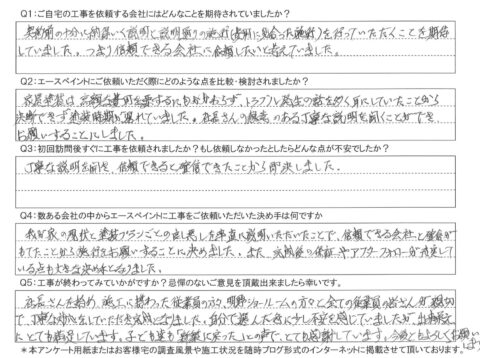 Q1：ご自宅の工事を依頼する会社にはどんなことを期待されていましたか？
契約前の十分に納得いく説明と説明通りの施行(費用に見合った施行)を行っていただくことを期待
していました。つまり信頼できる会社に依頼したいと考えていました。
Q2：エースペイントにご依頼いただく際にどのような点を比較・検討されましたか？
高額な費用を要するにもかかわらず、トラブル発生の話を多く耳にしていたことから
決断できず
お願いすることにしました。
Q3：初回訪問後すぐに工事を依頼されましたか？もし依頼しなかったとしたらどんな点が不安でしたか？
丁寧な説明を聞き、信頼できると確信できたことから即決しました。
Q4：数ある会社の中からエースペイントに工事をご依頼いただいた決め手は何ですか
我が家の現状と塗装プランごとの良し悪しを率直に説明いただいたことで、信頼できる会社と確信が
もてたことから施行をお願いすることに決めました。また、完成後の保証やアフターフォローが充実して
いる点も大きな決め手となりました。
Q5：工事が終わってみていかがですか？忌憚のないご意見を頂戴出来ましたら幸いです。
社長さんを始め、施工に携わった従業員の方、ショールームの方など全ての従業員の皆さんが親切
で、丁寧な
とても満足しています。子ども達も「綺麗になった」との声で、とても感謝しています。今後ともよろしくお願い
＊本アンケート用紙またはお客様宅の調査風景や施工状況を随時ブログ形式のインターネットに掲載させて頂いております。